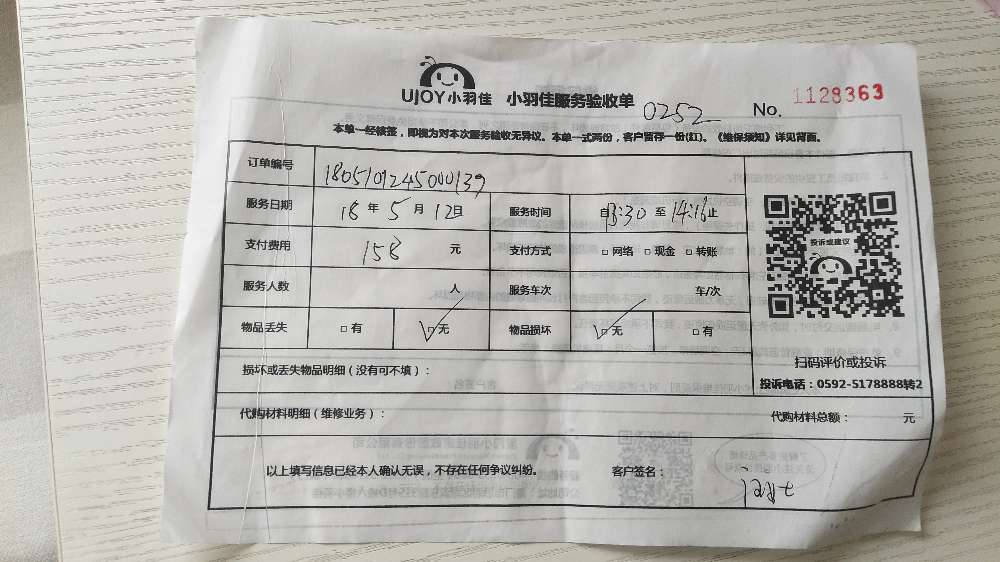 UJOY小羽佳 小羽佳服务验收单 0252 No. 1128363
本单一经核签,即视为对本次服务验收无异议。本单一式两份,客户留存一份(红)。《维保须知》详见背面。
订单编号 1805109245000139
服务日期 18年5月12日 服务时间 自13:30至14:16止
支付费用 158 元 支付方式 □网络 □现金 □转账
服务人数 人 服务车次 车/次
物品丢失 □有 ☑无 物品损坏 ☑无 □有
投诉或建议
扫码评价或投诉
投诉电话:0592-5178888转2
损坏或丢失物品明细(没有可不填):
代购材料明细(维修业务): 代购材料总额: 元
以上填写信息已经本人确认无误,不存在任何争议纠纷。 客户签名: